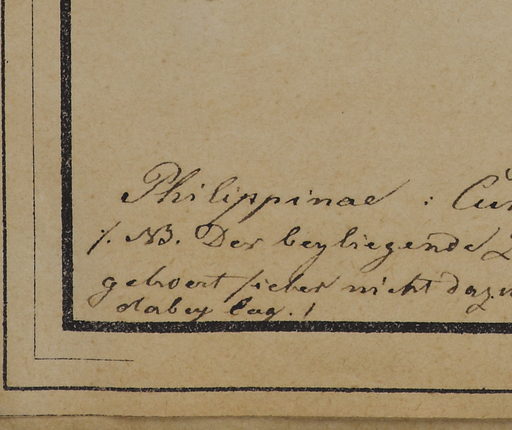 Philippinae : Cum
/. NB. Der beyliegende
gehoert sicher nicht dazu
dabey lag. /